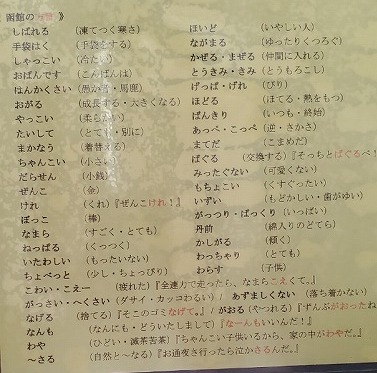 函館の方言 》
しばれる (凍てつく寒さ)
手袋はく (手袋をする)
しゃっこい (冷たい)
おばんです (こんばんは)
はんかくさい (愚か者・馬鹿)
おがる (成長する・大きくなる)
やっこい (柔らかい)
たいして (とても・別に)
まかなう (着替える)
ちゃんこい (小さい)
だらせん (小銭)
ぜんこ (金)
けれ (くれ)『ぜんこけれ！』
ぼっこ (棒)
なまら (すごく・とても)
ねっぱる (くっつく)
いたわしい (もったいない)
ちょべっと (少し・ちょっぴり)
ほいど (いやしい人)
ながまる (ゆったりくつろぐ)
かぜる・まぜる (仲間に入れる)
とうきみ・きみ (とうもろこし)
げっぱ・げれ (びり)
ほどる (ほてる・熱をもつ)
ばんきり (いつも・終始)
あっぺ・こっぺ (逆・さかさ)
まてだ (こまめだ)
ばぐる (交換する)『そっちとばぐるべ！
みったぐない (可愛くない)
もちょこい (くすぐったい)
いずい (もどかしい・歯がゆい)
がっつり・ばっくり (いっぱい)
丹前 (綿入りのどてら)
かしがる (傾く)
わっちゃり (とても)
わらす (子供)
こわい・こえー (疲れた)『全速力で走ったら、なまらこえくて。』
がっさい・へくさい (ダサイ・カッコわるい) / あずましくない (落ち着かない)
なげる (捨てる)『そこのゴミなげて。』/ がおる (やつれる)『ずんぶがおったね
なんも (なんにも・どういたしまして)『なーんもいいんだ！』
わや (ひどい・滅茶苦茶)『ちゃんこい子供いるから、家の中がわやだ。』
～さる (自然と～なる)『お通夜さ行ったら泣かさるんだ。』